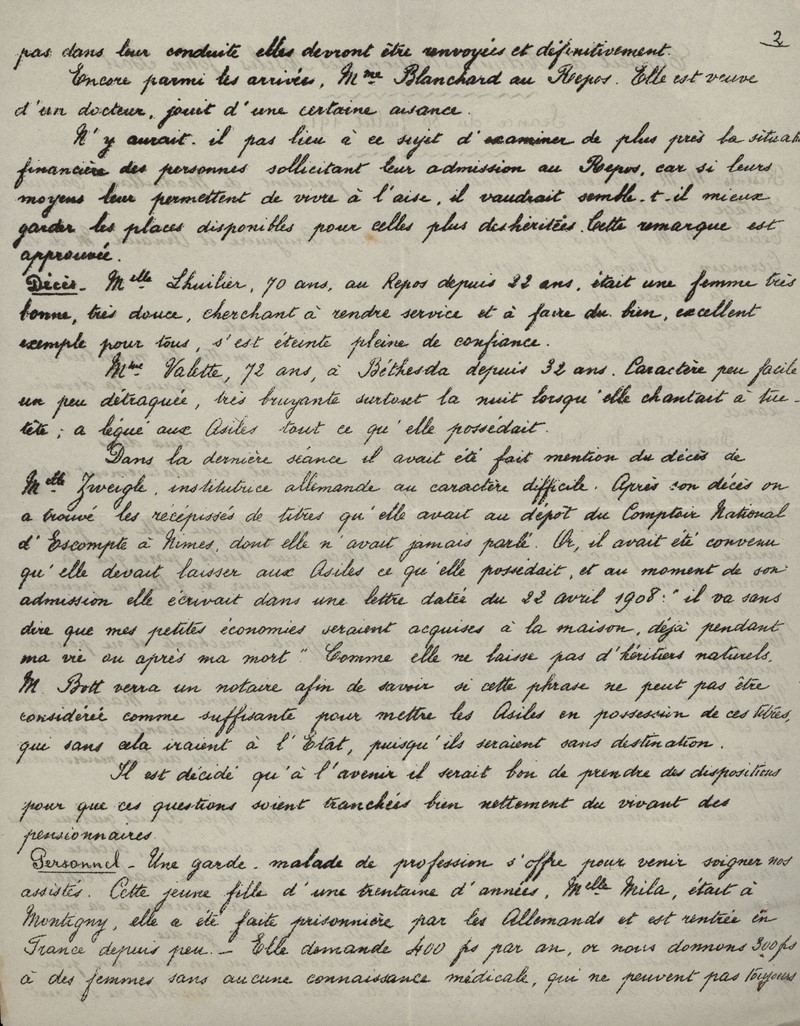 3
pas dans leur conduite elles devront être renvoyées et définitivement.
Encore parmi les arrivées, Mme Blanchard au Repos. Elle est veuve
d'un docteur, jouit d'une certaine aisance.
N'y aurait-il pas lieu à ce sujet d'examiner de plus près la situat
financière des personnes sollicitant leur admission au Repos, car si leurs
moyens leur permettent de vivre à l'aise, il vaudrait semble-t-il mieux
garder les places disponibles pour celles plus deshéritées. Cette remarque est
approuvée.
Décès - Melle Lhuilier, 70 ans, au Repos depuis 22 ans, était une femme très
bonne, très douce, cherchant à rendre service et à faire du bien, excellent
exemple pour tous, s'est éteinte pleine de confiance.
Mme Valette, 72 ans, à Béthesda depuis 32 ans. Caractère peu facile
un peu détraquée, très bruyante surtout la nuit lorsqu'elle chantait à tue-
tête ; a légué aux Asiles tout ce qu'elle possédait.
Dans la dernière séance il avait été fait mention du décès de
Melle Zweigle, institutrice allemande au caractère difficile. Après son décès on
a trouvé les récépissés de titres qu'elle avait au dépôt du Comptoir National
d'Escompte à Nîmes, dont elle n'avait jamais parlé. Or, il avait été convenu
qu'elle devait laisser aux Asiles ce qu'elle possédait, et au moment de son
admission elle écrivait dans une lettre datée du 22 avril 1908 : "il va sans
dire que mes petites économies seraient acquises à la maison, déjà pendant
ma vie ou après ma mort" Comme elle ne laisse pas d'héritiers naturels,
M. Bott verra un notaire afin de savoir si cette phrase ne peut pas être
considérée comme suffisante pour mettre les Asiles en possession de ces titres,
qui sans cela iraient à l'État, puisqu'ils seraient sans destination.
Il est décidé qu'à l'avenir il serait bon de prendre des dispositions
pour que ces questions soient tranchées bien nettement du vivant des
pensionnaires.
Personnel - Une garde-malade de profession s'offre pour venir soigner nos
assistés. Cette jeune fille d'une trentaine d'années, Melle Mila, était à
Montigny, elle a été faite prisonnière par les Allemands et est rentrée en
France depuis peu. - Elle demande 400 fs par an, or nous donnons 300 fs
à des femmes sans aucune connaissance médicale, qui ne peuvent pas toujours